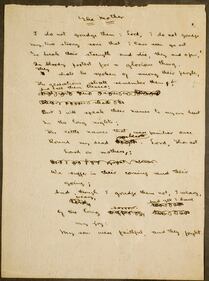 The Mother
I do not grudge them: Lord, I do not grudge
My two strong sons that I have seen go out
To break their strength and die, they and a few,
In bloody protest for a glorious thing.
They shall be spoken of among their people,
The generations shall remember them,
And call them blessed;
But I will speak their names to my own heart
In the long nights;
The little names that were familiar once
Round my dead hearth. Lord, thou art
hard on mothers;
We suffer in their coming and their
going;
And though I grudge them not, I weary,
weary
Of the long sorrow. And yet I have
my joy:
My sons were faithful and they fought.